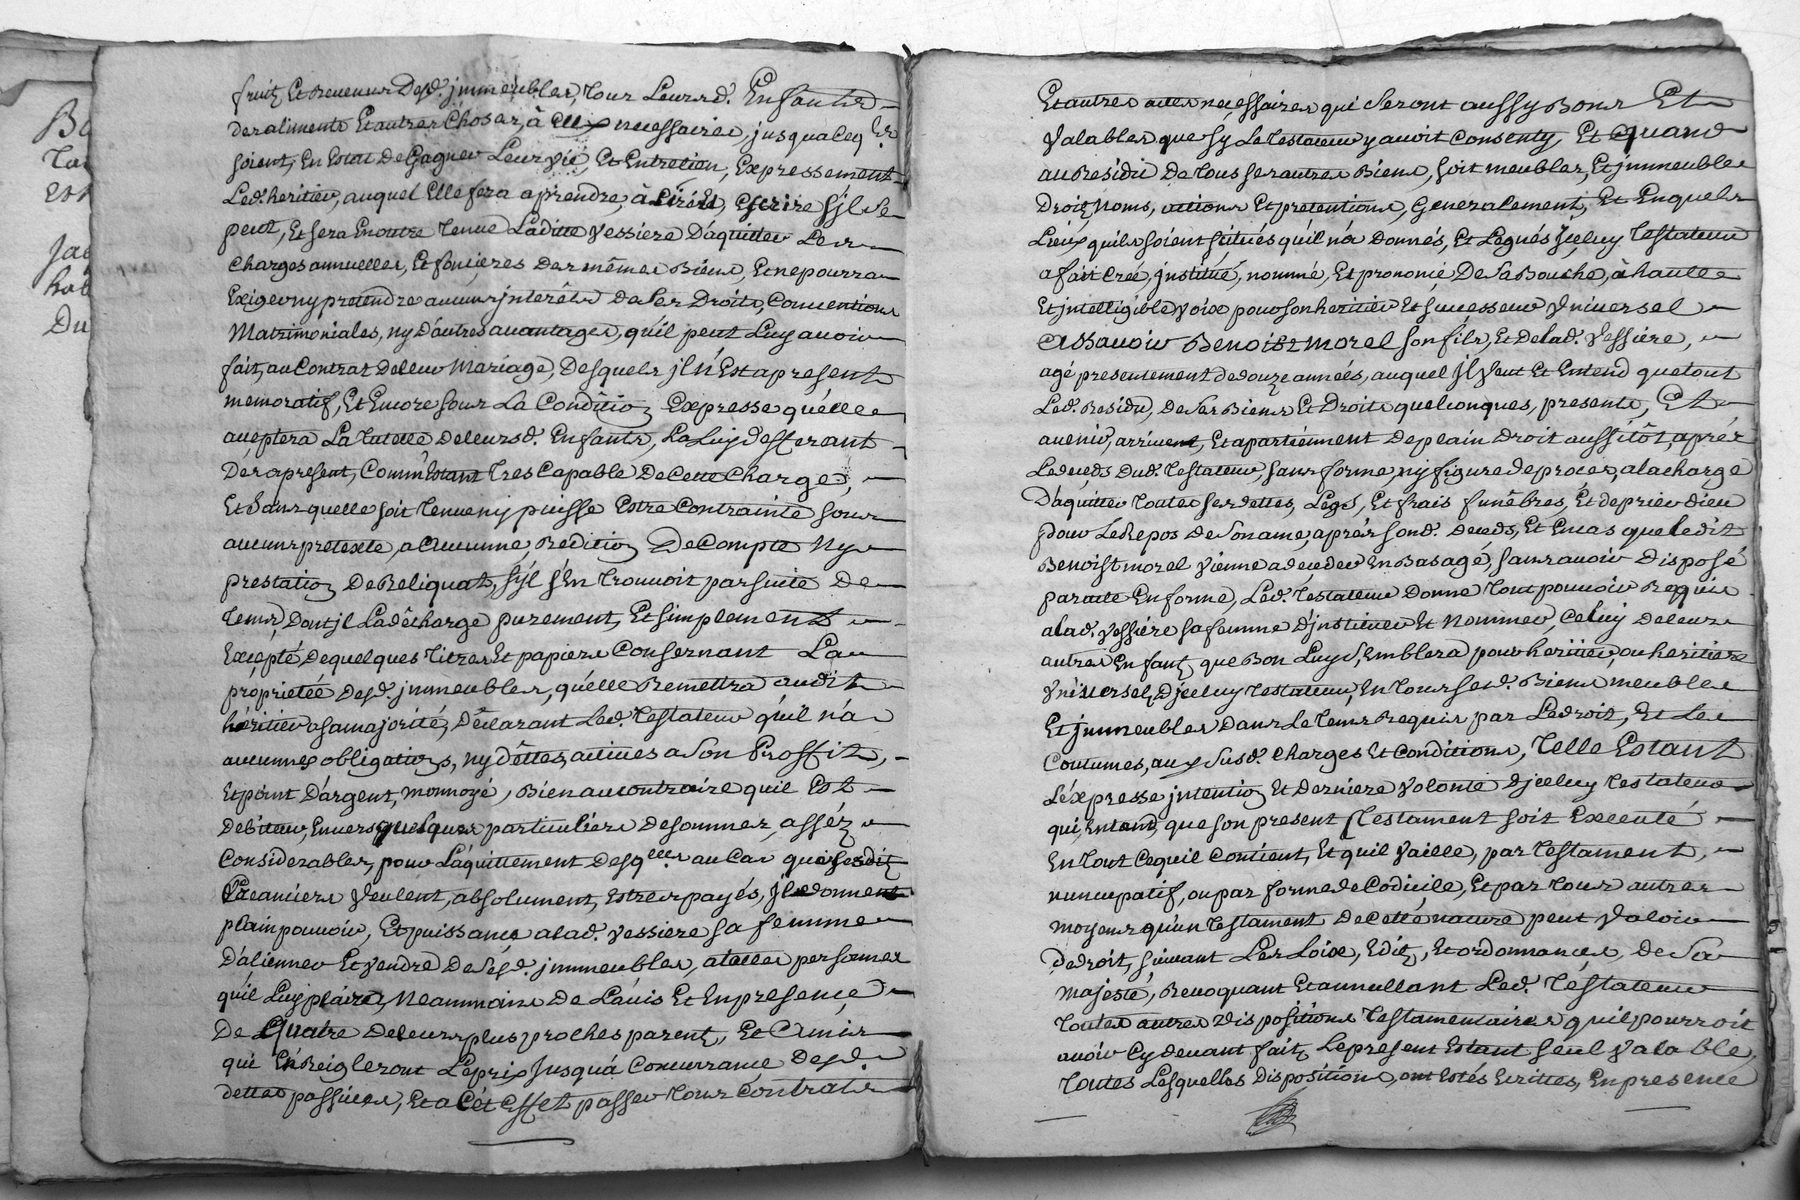 fruitz Et Revenus Desd. jmmeubles, tous Leursd. Enfants
des aliments Et autres Choses, à Eux necessaires, jusqua ceq
soient, En Estat De Gagner Leur Vie, Et Entretien, Expressement
Led. heritier, auquel Elle fera aprendre, à Lire, Escrire S'jl se
peut, Et sera En outre tenue Laditte Vessiere D'aquitter Les
Charges annuelles, Et fonsieres Des mêmes Biens, Et ne pourra
Exiger ny pretendre aucuns jnterêts de ses Droits, Conventions
Matrimoniales, ny D'autres avantages, qu'il peut Luy avoir
fait, au Contrat de leur Mariage, Desquels jl N'Est a present
memoratif, Et Encore sous La Condition Expresse quélle
aceptera La tutelle de leursd. Enfants, La Luy defferant
Des apresent, Comm'Estant tres Capable De Cette Charge,
Et sans quelle soit tenue ny puisse Estre Contrainte sous
aucuns pretexte, a Aucunne, Redition De Compte Ny
prestation De Reliquat, s'jl s'En trouvoit par suite De
tems, Dont jl La décharge purement, Et simplement
Excepté de quelques titres Et papiers Consernant La
proprietée desd. jmmeubles, qu'elle Remettra audit
héritier a sa majorité, Déclarant Led. testateur qu'il n'a
aucunnes obligations, ny déttes, actives a son Proffit,
Et point D'argent, monnoyé, Bien au contraire qu'il Est
Debiteur, Envers quelques particuliers de sommes, asséz
Considerables, pour L'aquittement desqlles au Cas que sesdit
Creanciers Veulent, absolument, Estres payés, jl donne
plain pouvoir, Et puissance a lad. Vessiere sa femme
D'alienner Et Vendre De sesd. jmmeubles, a telles personnes
qu'il Luy plaira, Neanmoins De L'avis Et En presence
De Quatre de leurs plus proches parents, Et Amis
qui En Reigleront Le prix Jusquá Concurrance Desd.
dettes passives, Et a Cét Effet passer tous Contrats
Et autres actes neçessaires qui seront aussy Bons Et
Valables que sy Le testateur y avoit Consenty, Et Quand
au Residu De tous ses autres Biens, soit meubles, Et jmmeubles
Droitz, Noms, actions Et pretentions, Generalement, Et En quels
Lieux qu'ils soient situés qu'il n'a Donnés, Et Legués jceluy testateur
a fait Creé, jnstitué, nommé, Et prononcé De sa Bouche, à haute
Et jntelligible Voix pour son heritier Et successeur Vniversel
Assavoir Benoist morel son fils, Et de lad. Vessiere,
agé presentement de douze années, auquel jl Veut Et Entend que tout
Led. Residu, De ses Biens Et Droits quelconques, presents, Et
avenir, arrivent, Et apartiennent de plain droit aussitôt, aprés
Le decéds dud. testateur, sans forme, ny figure de procés, a la charge
D'aquitter toutes ses dettes, Legs, Et frais funêbres, Et de prier dieu
pour Le Repos de son ame, aprés sond. deceds, Et En cas que ledit
Benoist morel Vienne a deceder En Bas agé, sans avoir Disposé
par acte En forme, Led. testateur Donne tout pouvoir Requis
a lad. Vessiere sa femme D'jnstituer Et Nommer, Celuy de leurs
autres Enfants que Bon Luy semblera pour héritier, ou heritiere
Vniversel, D'jceluy testateur, En tous sesd. Biens meubles
Et jmmeubles Dans Le tems Requis par Le droit, Et Les
Coutumes, aux susd. Charges Et Conditions, telle Estant
L'éxpresse jntention Et Derniere Volonté D'jceluy testateur
qui, Entend, que son present testament soit Executé
En tout Ce quil Contient, Et quil Vaille, par testament,
nuncupatif, ou par forme de Codicile, Et par tous autres
moyens qu'un testament de Cette nature peut Valoir
De droit, suivant Les Loix, Editz, Et ordonnances, de Sa
Majesté, Revoquant Et annullant Led. téstateur
toutes autres dispositions testamentaires qu'il pourroit
avoir Cy devant faits, Le present Estant seul Valable,
toutes Lesquelles Dispositions, ont Estés Ecrittes, En presence